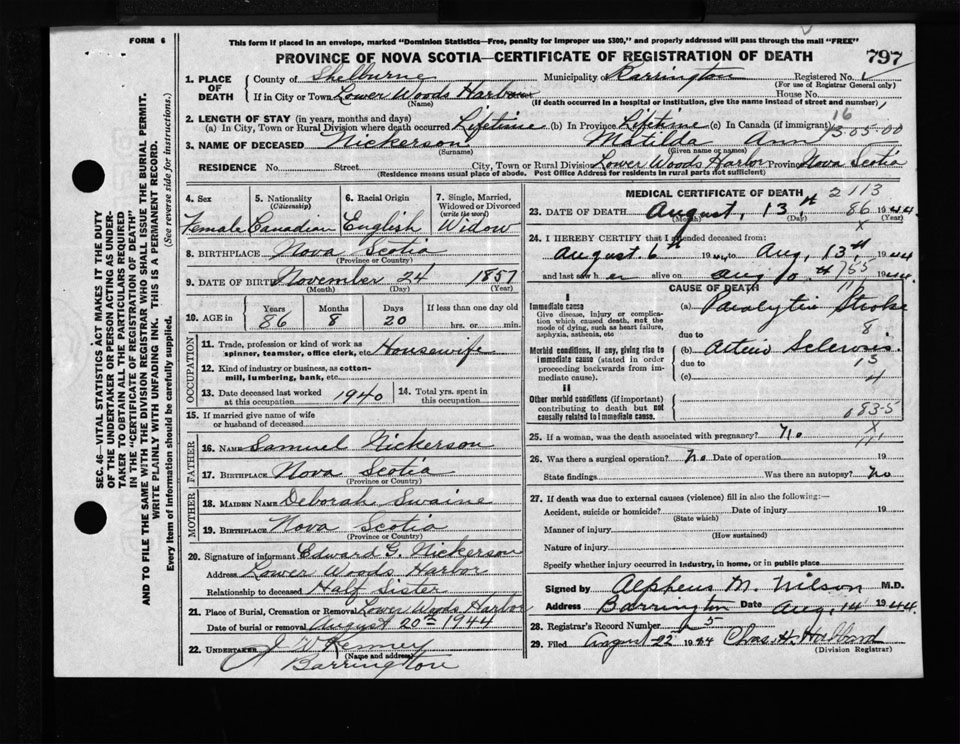 FORM 6
This form if placed in an envelope, marked "Dominion Statistics—Free, penalty for improper use $300," and properly addressed will pass through the mail "FREE"
PROVINCE OF NOVA SCOTIA—CERTIFICATE OF REGISTRATION OF DEATH 797
SEC. 46—VITAL STATISTICS ACT MAKES IT THE DUTY
OF THE UNDERTAKER OR PERSON ACTING AS UNDER-
TAKER TO OBTAIN ALL THE PARTICULARS REQUIRED
IN THE "CERTIFICATE OF REGISTRATION OF DEATH"
AND TO FILE THE SAME WITH THE DIVISION REGISTRAR WHO SHALL ISSUE THE BURIAL PERMIT.
WRITE PLAINLY WITH UNFADING INK. THIS IS A PERMANENT RECORD.
Every item of information should be carefully supplied. (See reverse side for instructions.)
1. PLACE OF DEATH County of Shelburne Municipality Barrington Registered No.
(For use of Registrar General only)
If in City or Town Lower Woods Harbour House No.
(Name) (If death occurred in a hospital or institution, give the name instead of street and number)
2. LENGTH OF STAY (in years, months and days)
(a) In City, Town or Rural Division where death occurred Lifetime (b) In Province Lifetime (c) In Canada (if immigrant)
16
305-00
3. NAME OF DECEASED Nickerson Matilda Ann
(Surname) (Given name or names)
RESIDENCE No. Street City, Town or Rural Division Lower Woods Harbor Province Nova Scotia
(Residence means usual place of abode. Post Office Address for residents in rural parts not sufficient)
4. Sex 5. Nationality (Citizenship) 6. Racial Origin 7. Single, Married, Widowed or Divorced (write the word)
Female Canadian English Widow
8. BIRTHPLACE Nova Scotia
(Province or Country)
9. DATE OF BIRTH November 24 1857
(Month) (Day) (Year)
10. AGE in Years Months Days If less than one day old
86 8 20 hrs. or min.
OCCUPATION
11. Trade, profession or kind of work as spinner, teamster, office clerk, etc. Housewife
12. Kind of industry or business, as cotton-mill, lumbering, bank, etc.
13. Date deceased last worked at this occupation 1940 14. Total yrs. spent in this occupation
15. If married give name of wife
or husband of deceased
FATHER
16. Name Samuel Nickerson
17. Birthplace Nova Scotia
(Province or Country)
MOTHER
18. Maiden Name Deborah Swaine
19. Birthplace Nova Scotia
(Province or Country)
20. Signature of informant Edward G. Nickerson
Address Lower Woods Harbor
Relationship to deceased Half Sister
21. Place of Burial, Cremation or Removal Lower Woods Harbor
Date of burial or removal August 20th 1944
22. UNDERTAKER
(Name and address)
Barrington
MEDICAL CERTIFICATE OF DEATH 2113
23. DATE OF DEATH August, 13th 86 1944
(Month) (Day) (Year)
24. I HEREBY CERTIFY that I attended deceased from:
August 6th 1944 to Aug, 13th 1944
and last saw her alive on Aug 10th 1944
755
CAUSE OF DEATH
I
Immediate cause
Give disease, injury or complication which caused death, not the mode of dying, such as heart failure, asphyxia, asthenia, etc
(a) Paralytic Stroke
due to 8
Morbid conditions, if any, giving rise to immediate cause (stated in order proceeding backwards from immediate cause).
(b) Arterio Sclerosis
due to
(c)
II
Other morbid conditions (if important) contributing to death but not causally related to immediate cause.
083-5
25. If a woman, was the death associated with pregnancy? No
26. Was there a surgical operation? No Date of operation 19
State findings Was there an autopsy? No
27. If death was due to external causes (violence) fill in also the following:—
Accident, suicide or homicide? Date of injury 19
(State which)
Manner of injury
(How sustained)
Nature of injury
Specify whether injury occurred in industry, in home, or in public place
Signed by Alpheus M. Wilson M.D.
Address Barrington Date Aug, 14 1944.
28. Registrar's Record Number 5
29. Filed August 22nd 1944 Chas. H.
(Division Registrar)